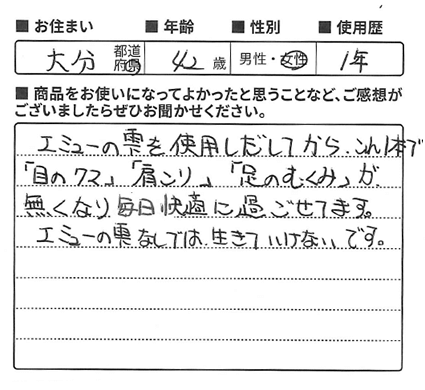 ■ お住まい ■ 年齢 ■ 性別 ■ 使用歴
大分 都道府県 42 歳 男性・女性 1年
■ 商品をお使いになってよかったと思うことなど、ご感想が
ございましたらぜひお聞かせください。
エミューの雫を使用しだしてから、これ1本で
「目のクマ」「肩こり」、「足のむくみ」が、
無くなり毎日快適に過ごせてます。
エミューの雫なしでは、生きていけないです。